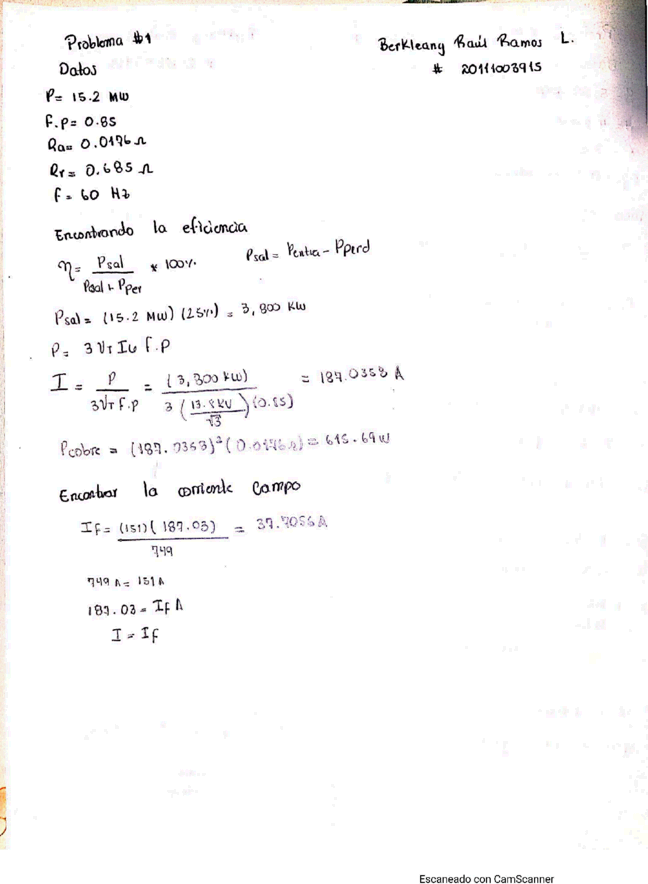 Problema #1
Berkleang Raúl Ramos L.
# 20111003915
Datos
P= 15.2 MW
F.p= 0.85
Ra= 0.0176 Ω
Rr= 0.685 Ω
f= 60 Hz
Encontrando la eficiencia
η= Psal / Psal + Pper * 100%. Psal = Pentra - Pperd
Psal = (15.2 MW) (25%) = 3,800 KW
P= 3 VT IL f.p
I = P / 3VT F.p = (3,800 KW) / 3 (13.8 KV / √3) (0.85) = 187.0358 A
Pcobre = (187.0353)² (0.0176 Ω) = 615.69 W
Encontrar la corriente Campo
If= (151)(187.03) / 749 = 37.7056 A
749 A = 151 A
187.03 = If A
I = If
Escaneado con CamScanner